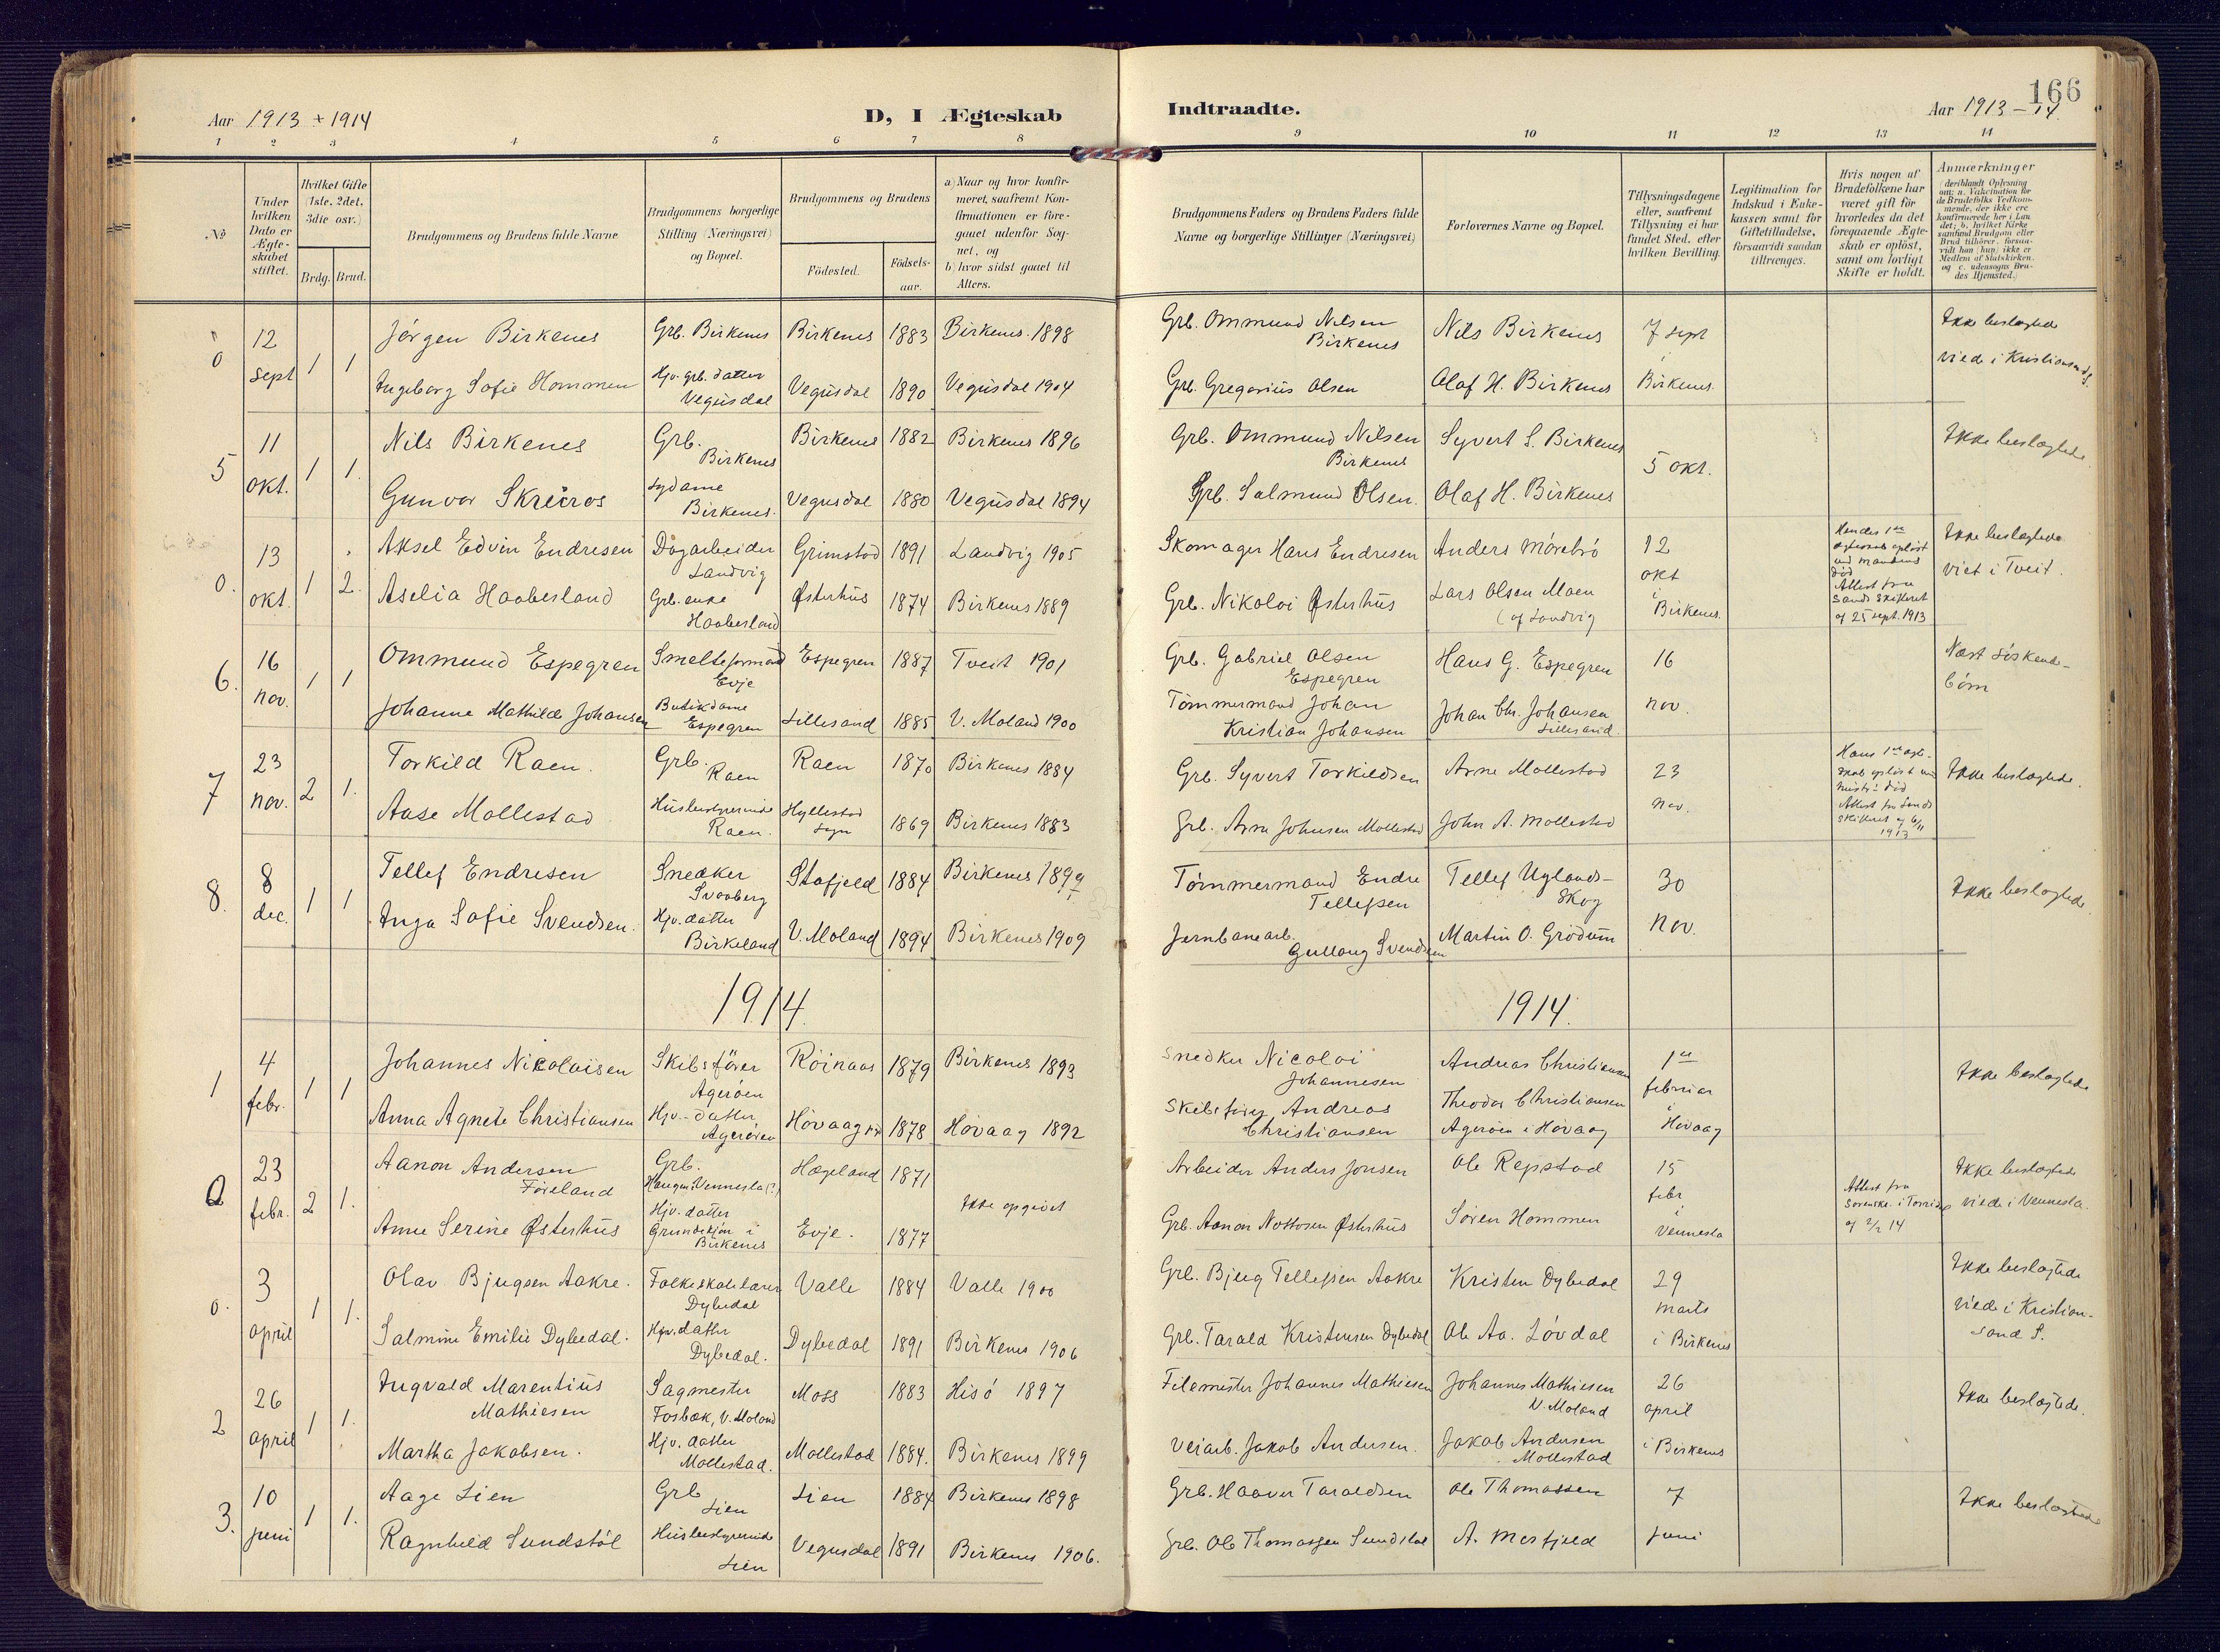 166
Aar 1913 + 1914
D, I Ægteskab
Indtraadte.
Aar 1913-14.
1 2 3 4 5 6 7 8 9 10 11 12 13 14
No
Under hvilken Dato er Ægteskabet stiftet.
Hvilket Gifte (1ste, 2det, 3die osv.)
Brdg. Brud.
Brudgommens og Brudens fulde Navne
Brudgommens borgerlige Stilling (Næringsvei) og Bopæl.
Brudgommens og Brudens
Födested.
Födsels-aar.
a) Naar og hvor konfirmeret, saafremt Konfirmationen er foregaaet udenfor Sognet, og
b) hvor sidst gaaet til Alters.
Brudgommens Faders og Brudens Faders fulde Navne og borgerlige Stillinger (Næringsvei)
Forlovernes Navne og Bopæl.
Tillysningsdagene eller, saafremt Tillysning ei har fundet Sted, efter hvilken Bevilling.
Legitimation for Indskud i Enkekassen samt for Giftetilladelse, forsaavidt saadan tiltrænges.
Hvis nogen af Brudefolkene har været gift för hvorledes da det foregaaende Ægteskab er oplöst, samt om lovligt Skifte er holdt.
Anmærkninger
0 12 sept 1 1
Jörgen Birkenes Grb. Birkenes Birkenes 1883 Birkenes 1898 Grb. Ommund Nilsen Birkenes Nils Birkenes 7 sept i Birkenes Ikke beslægtede
Ingeborg Sofie Hommen Hjv. grb. datter Vegusdal Vegusdal 1890 Vegusdal 1904 Grb. Gregorius Olsen Olaf H. Birkenes viede i Kristiansand S.
5 11 okt. 1 1.
Nils Birkenes Grb. Birkenes Birkenes 1882 Birkenes 1896 Grb. Ommund Nilsen Birkenes Syvert S. Birkenes 5 okt. Ikke beslægtede
Gunvor Skreiros Sydame Birkenes. Vegusdal 1880 Vegusdal 1894 Grb. Salmund Olsen. Olaf H. Birkenes
0. 13 okt. 1 2.
Aksel Edvin Endresen Dagarbeider Landvig Grimstad 1891 Landvig 1905 Skomager Hans Endresen Anders Mörebrö 12 okt i Birkenes. Hendes 1ste oplöst ved mandens död Attest fra Sands Skifteret af 25 sept. 1913 Ikke beslægtede viet i Tveit.
Aselia Haaberland Grb. enke Haaberland Østerhus 1874 Birkenes 1889 Grb. Nikolai Østerhus Lars Olsen Moen (af Landvig
6. 16 nov. 1 1
Ommund Espegren Smelteformand Evje Espegren 1887 Tveit 1901 Grb. Gabriel Olsen Espegren Hans G. Espegren 16 nov. Næst söskendebörn
Johanne Mathilde Johansen Butikdame Espegren Lillesand 1885 V. Moland 1900 Tömmermand Johan Kristian Johansen Johan Chr. Johansen Lillesand.
7 23 nov. 2 1.
Torkild Raen. Grb. Raen Raen 1870 Birkenes 1884 Grb. Syvert Torkildsen Arne Mollestad 23 nov. Hans 1ste oplöst ved död Attest fra Sands Skifteret af 6/11 1913 Ikke beslægtede.
Aase Mollestad Husbestyrerinde Raen. Hyllestad sogn 1869 Birkenes 1883 Grb. Arne Johnsen Mollestad John A. Mollestad
8. 8 dec. 1 1
Tellef Endresen Snedker Svaaberg Stafjeld 1884 Birkenes 1899 Tömmermand Endre Tellefsen Tellef Uglands-Skog 30 nov. Ikke beslægtede.
Inga Sofie Svendsen. Hjv. datter Birkeland V. Moland 1894 Birkenes 1909 Jernbanearb. Gullaug Svendsen Martin O. Grödum
1914. 1914.
1 4 febr. 1 1
Johannes Nicolaisen Skibsförer Ageröen Röinaas 1879 Birkenes 1893 Snedker Nicolai Johannesen Andreas Christiansen 1ste februar i Hövaag Ikke beslægtede
Anna Agnete Christiansen Hjv. datter Ageröen Hövaag 1878 Hövaag 1892 Skibsförer Andreas Christiansen Theodor Christiansen Ageröen i Hövaag
0 23 febr. 2 1.
Aanon Andersen Föreland Grb. Vennesla (?) Hægeland 1871 Ikke opgivet Arbeider Anders Jonsen Ole Repstad 15 febr i Vennesla Attest fra Sorenskr. i Torridal af 2/2 14 Ikke beslægtede viede i Vennesla.
Anne Serine Østerhus Hjv. datter i Birkenes Evje. 1877 Grb. Aanon Nottosen Østerhus Sören Hommen
0. 3 april 1 1.
Olav Bjugsen Aakre. Folkeskolelærer Dybedal Valle 1884 Valle 1900 Grb. Bjug Tellefsen Aakre Kristen Dybedal 29 marts i Birkenes Ikke beslægtede viede i Kristiansand S.
Salmine Emilie Dybedal. Hjv. datter Dybedal. Dybedal 1891 Birkenes 1906 Grb. Tarald Kristensen Dybedal Ole Aa. Lövdal
2 26 april 1 1.
Ingvald Marentius Mathiesen Sagmester Fosbæk, V. Moland Moss 1883 Hisö 1897 Filemester Johannes Mathiesen Johannes Mathiesen V. Moland 26 april i Birkenes Ikke beslægtede.
Martha Jakobsen. Hjv. datter Mollestad. Mollestad 1884. Birkenes 1899 Veiarb. Jakob Andersen. Jakob Andersen Mollestad
3. 10 juni 1 1.
Aage Lien Grb Lien Lien 1884 Birkenes 1898 Grb. Haaver Taraldsen Ole Thomassen 7 juni Ikke beslægtede
Ragnhild Sundstöl Husbestyrerinde Lien Vegusdal 1891 Birkenes 1906. Grb. Ole Thomassen Sundstöl A. Mosfjeld